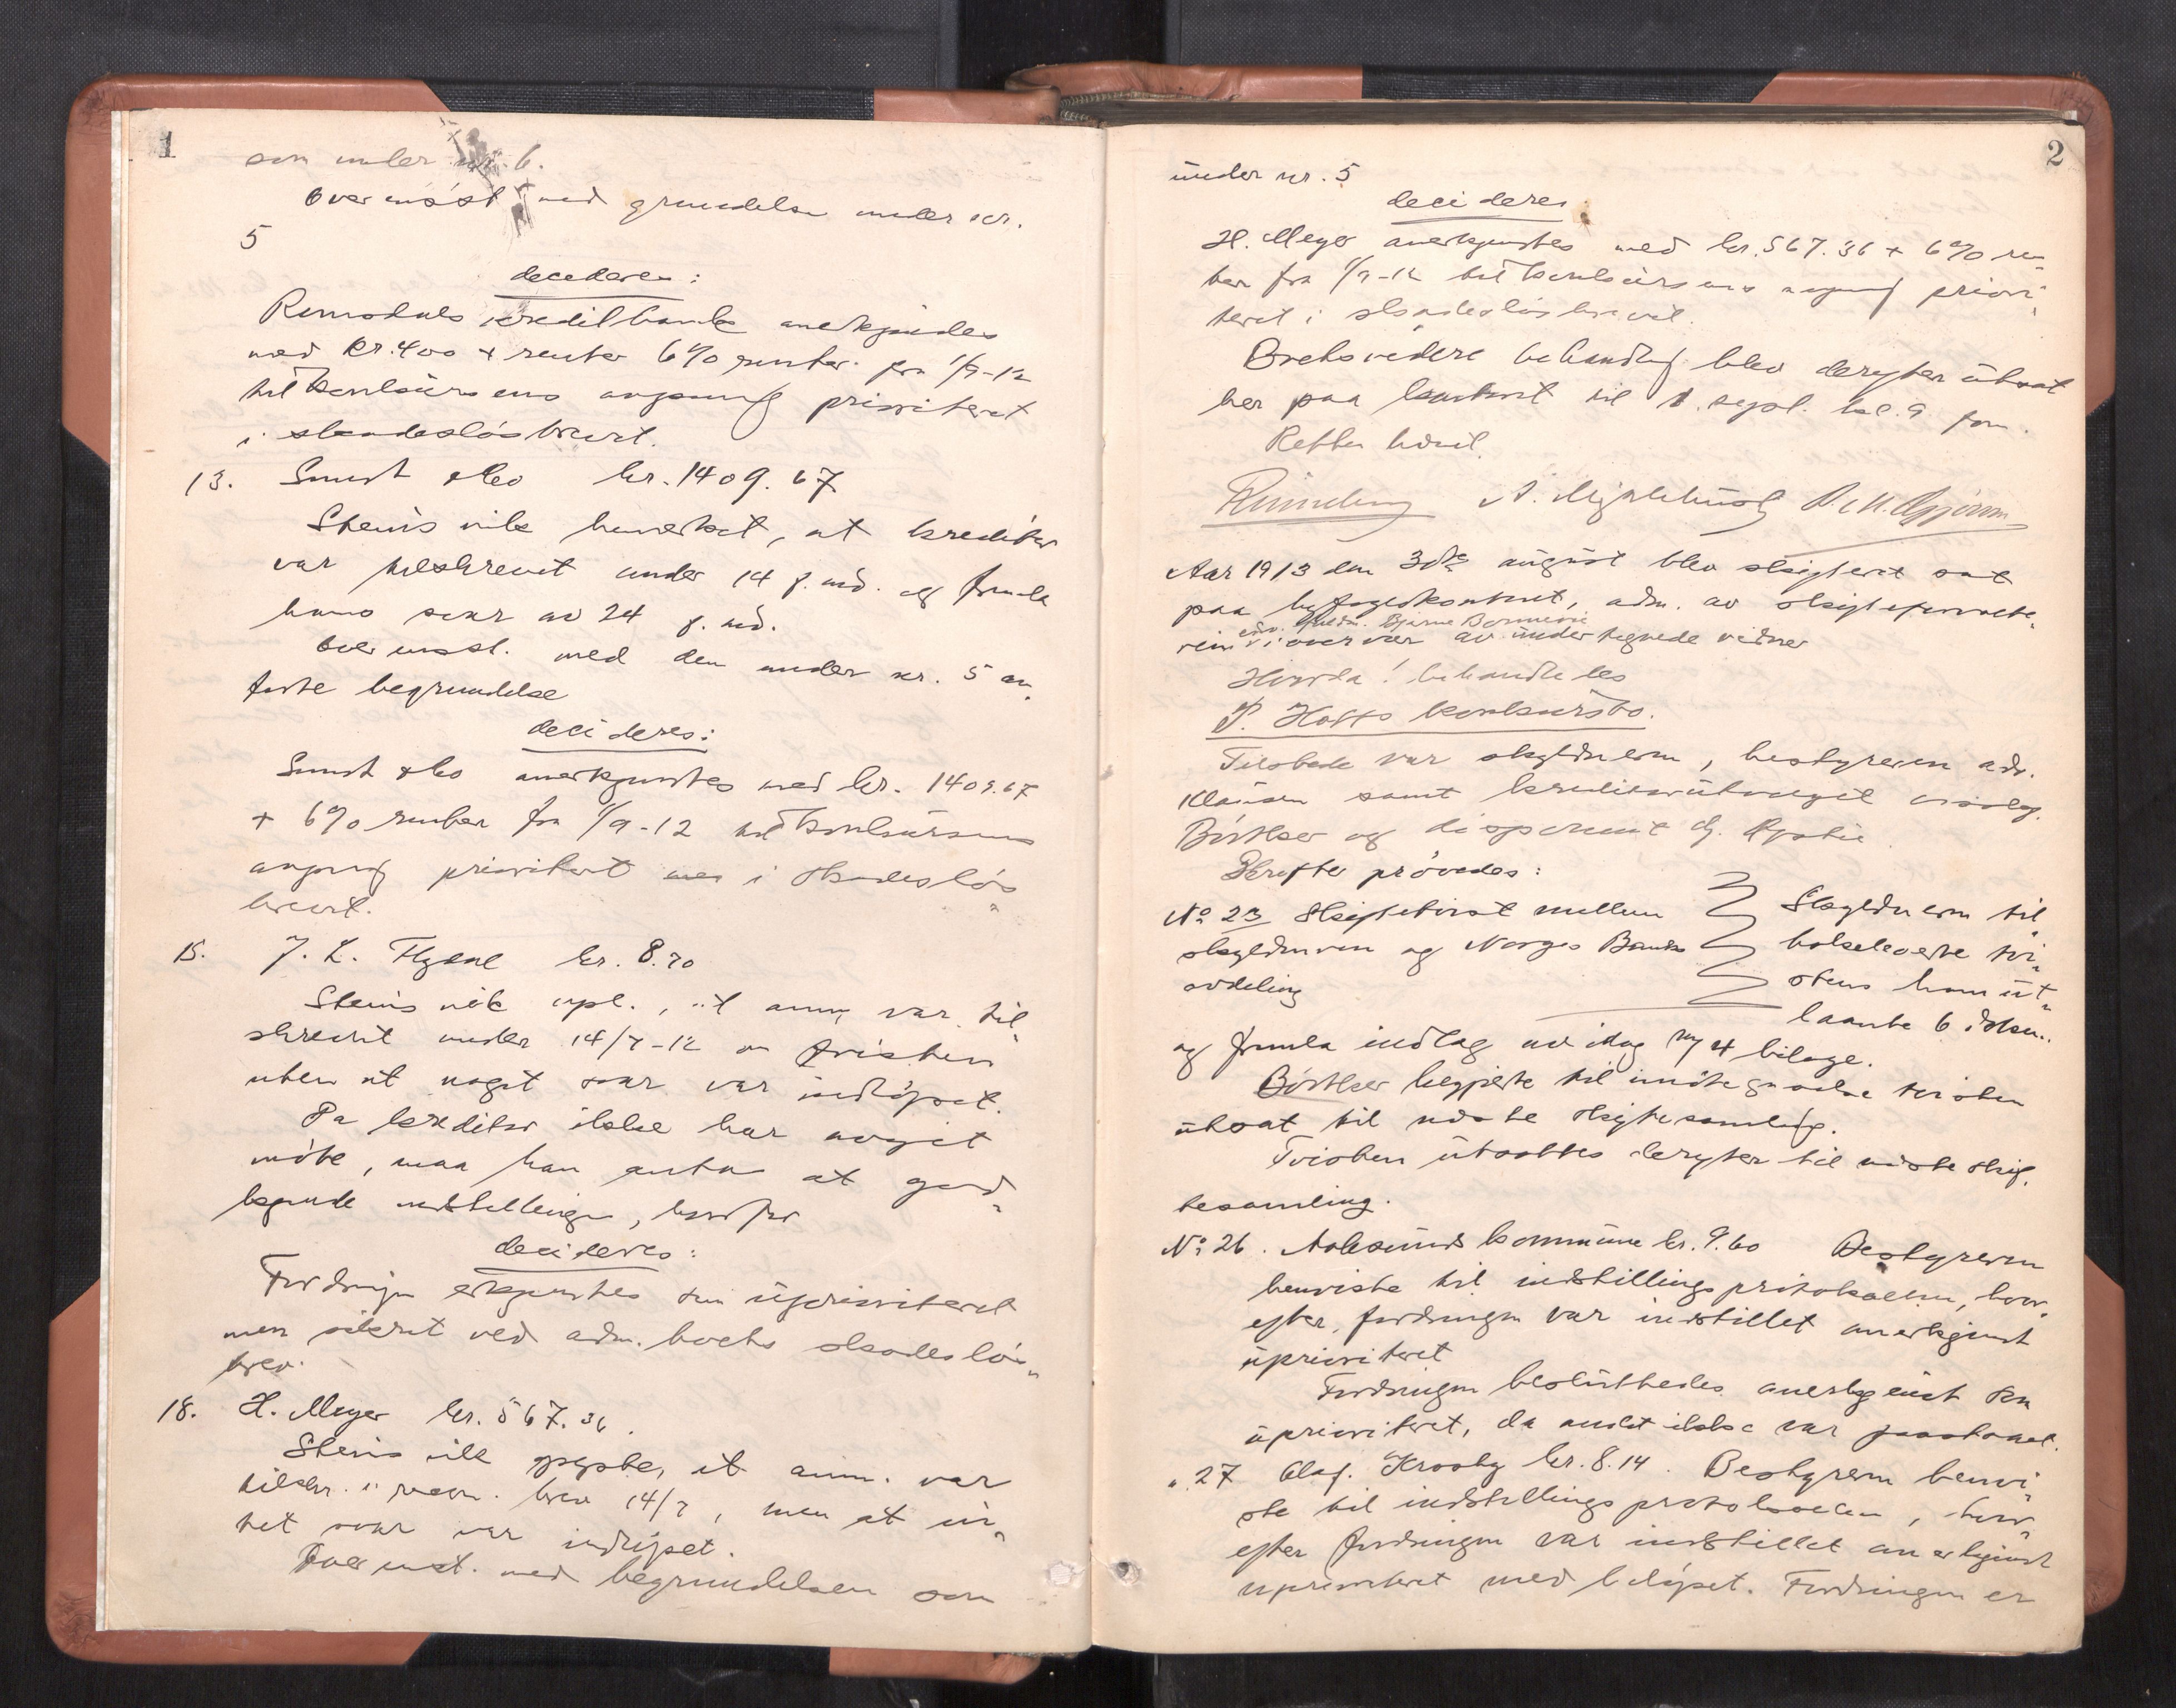 1
som under nr. 6.
Overensst. med grundelse under nr.
5
decideres:
Romsdals kreditbank anerkjendes
med kr. 400 + renter 6% renter fra 1/9-12
til konkursens aapning prioriteret
i skadesløsbrevet.
13. Sundt & Co kr. 1409.67
Stenis vilk bemerket, at kreditor
var tilskrevet under 14 f. md. og fremla
hans svar av 24 f. md.
Overensst. med den under nr. 5 an-
førte begrundelse
decideres:
Sundt & Co anerkjendtes med kr. 1409.67
+ 6% renter fra 1/9-12 til konkursens
aapning prioritert i skadesløs-
brevet.
15. J. L. kr. 8.70
Stenis opl., at anm. var til-
skrevet under 14/7-12 om fristen
uten at noget svar var indløpet.
Da kreditor ikke har avgit
møte, maa han antas at god-
kjende indstillingen, hvorfor
decideres:
Fordringen erkjendtes som uprioriteret
men sikret ved adm. boets skadesløs-
brev.
18. H. Meyer kr. 567.36.
Stenis at anm. var
tilskr. i brev 14/7, men at in-
tet svar var indløpet.
Overenst. med begrundelsen som
2
under nr. 5
decideres:
H. Meyer anerkjendtes med kr. 567.36 + 6% ren-
ter fra 1/9-12 til konkursens aapning priori-
teret i skadesløsbrevet.
Boets videre behandling blev derefter utsat
her paa kontoret til 1. sept. kl. 9 fom.
Retten hævet.
Aar 1913 den 30te august blev skifteret sat
paa byfogedkontoret, adm. av skifteforvalte-
ren i overvær av undertegnede vidner
Hvorda! behandledes
P. Hoffs konkursbo.
Tilstede var skyldneren, bestyreren adv.
Klausen samt kreditorutvalget
og disponent
Derefter prøvedes:
No 23 Skiftetvist mellem
skyldneren og Norges Banks
avdeling
Skyldneren til-
bakeleverte tvi-
stens
laante 6
og fremla indlæg av idag m/ 4 bilage.
begjærte til imøtegaaelse tvisten
utsat til næste skiftesamling.
Tvisten utsattes derefter til næste skif-
tesamling.
No 26. Aalesunds kommune kr. 9.60 Bestyreren
henviste til indstillingsprotokollen, hvor-
efter fordringen var indstillet anerkjendt
uprioriteret
Fordringen besluttedes anerkjendt som
uprioriteret, da andet ikke var paastaaet.
" 27 Olaf Krosby kr. 8.14. Bestyreren henvi-
ste til indstillingsprotokollen, hvor-
efter fordringen var indstillet anerkjendt
uprioriteret med beløpet. Fordringen er